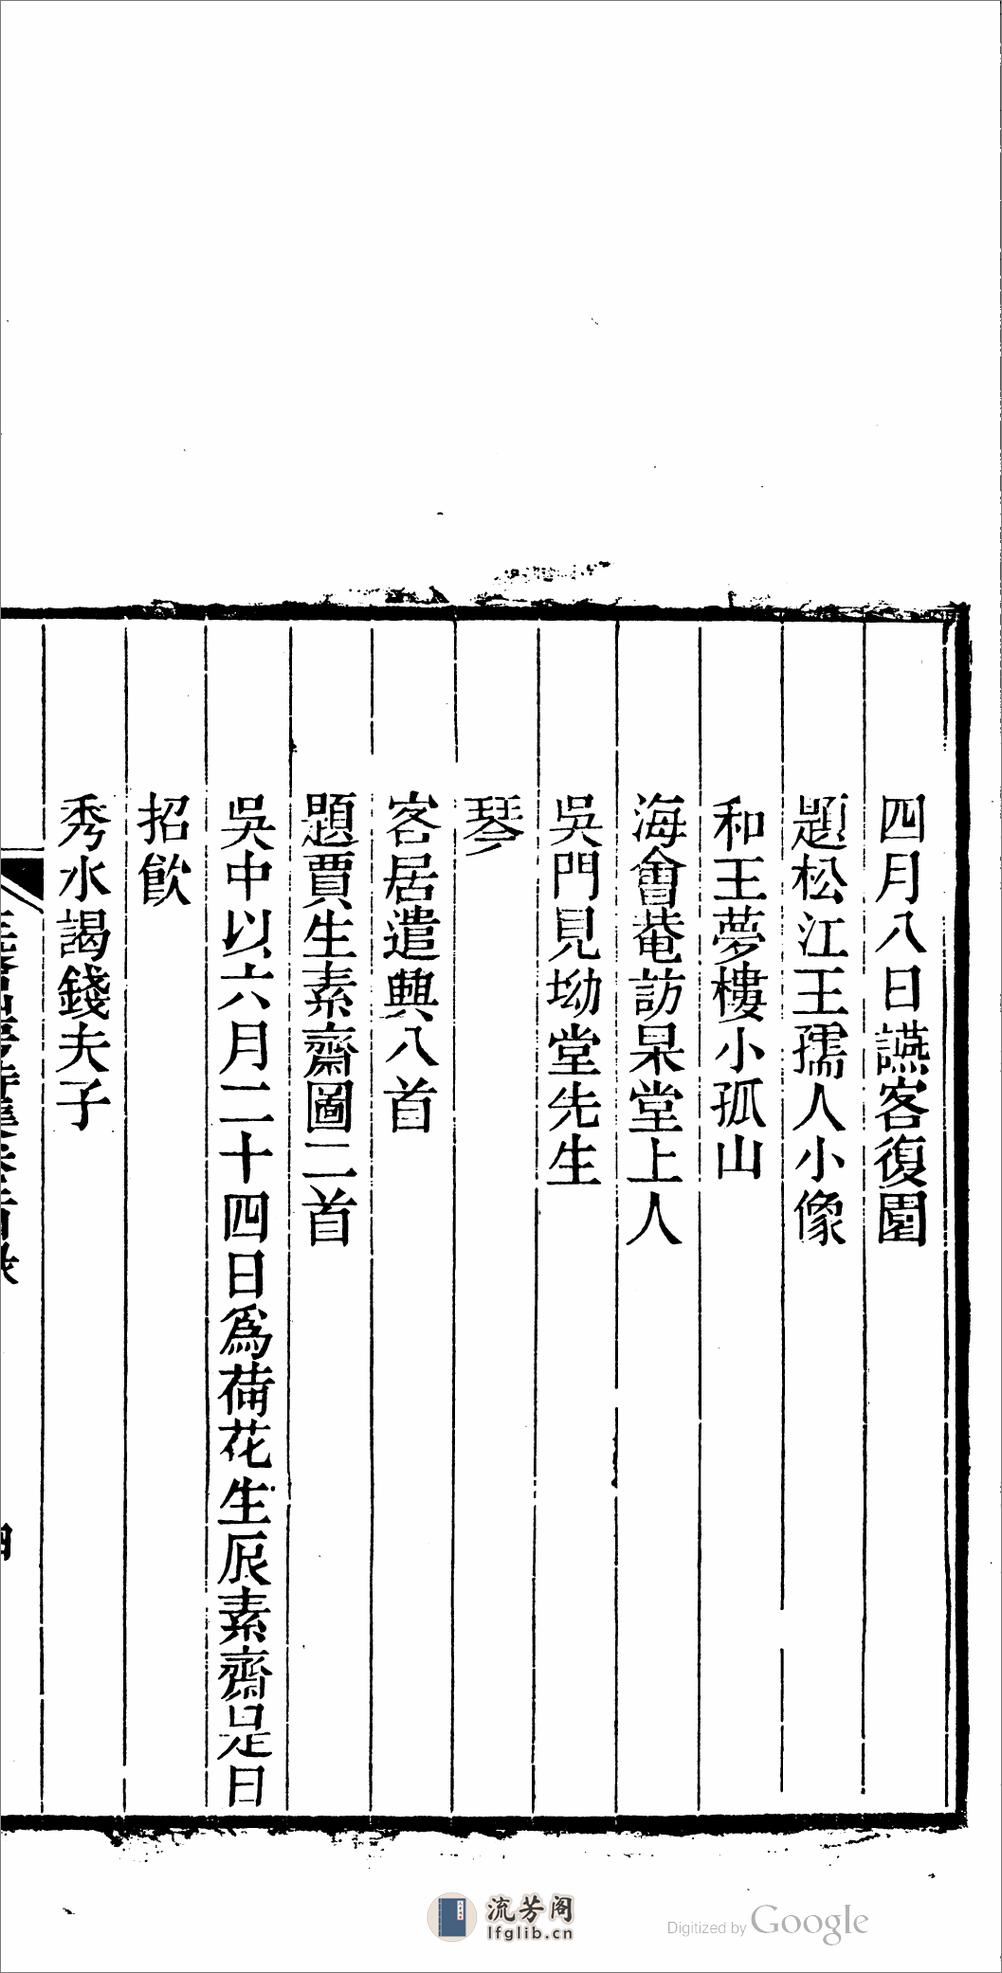 四月八日讌客復園
題松江王孺人小像
和王夢樓小孤山
海會菴訪杲堂上人
吳門見坳堂先生
琴
客居遣興八首
題賈生素齋圖二首
吳中以六月二十四日爲荷花生辰素齋是日
招飲
秀水謁錢夫子
流芳阁
lfglib.cn
Digitized by Google